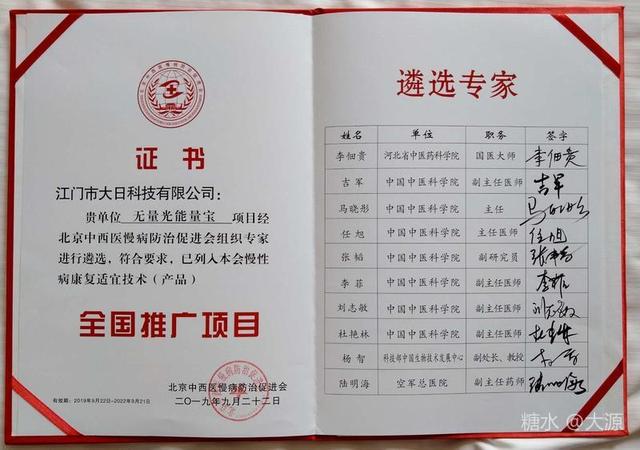 证书
江门市大日科技有限公司：
贵单位 无量光能量宝 项目经
北京中西医慢病防治促进会组织专家
进行遴选，符合要求，已列入本会慢性
病康复适宜技术（产品）
全国推广项目
北京中西医慢病防治促进会
有效期：2019年9月22日-2022年9月21日
二〇一九年九月二十二日
遴选专家
姓名 单位 职务 签字
李佃贵 河北省中医药科学院 国医大师 李佃贵
吉军 中国中医科学院 副主任医师 吉军
马晓彤 中国中医科学院 主任
任旭 中国中医科学院 主任医师 任旭
张韬 中国中医科学院 副研究员
李菲 中国中医科学院 副主任医师
刘志敏 中国中医科学院 副主任医师 刘志敏
杜艳林 中国中医科学院 副主任医师
杨智 科技部中国生物技术发展中心 副处长、教授
陆明海 空军总医院 副主任药师
糖水 @大源